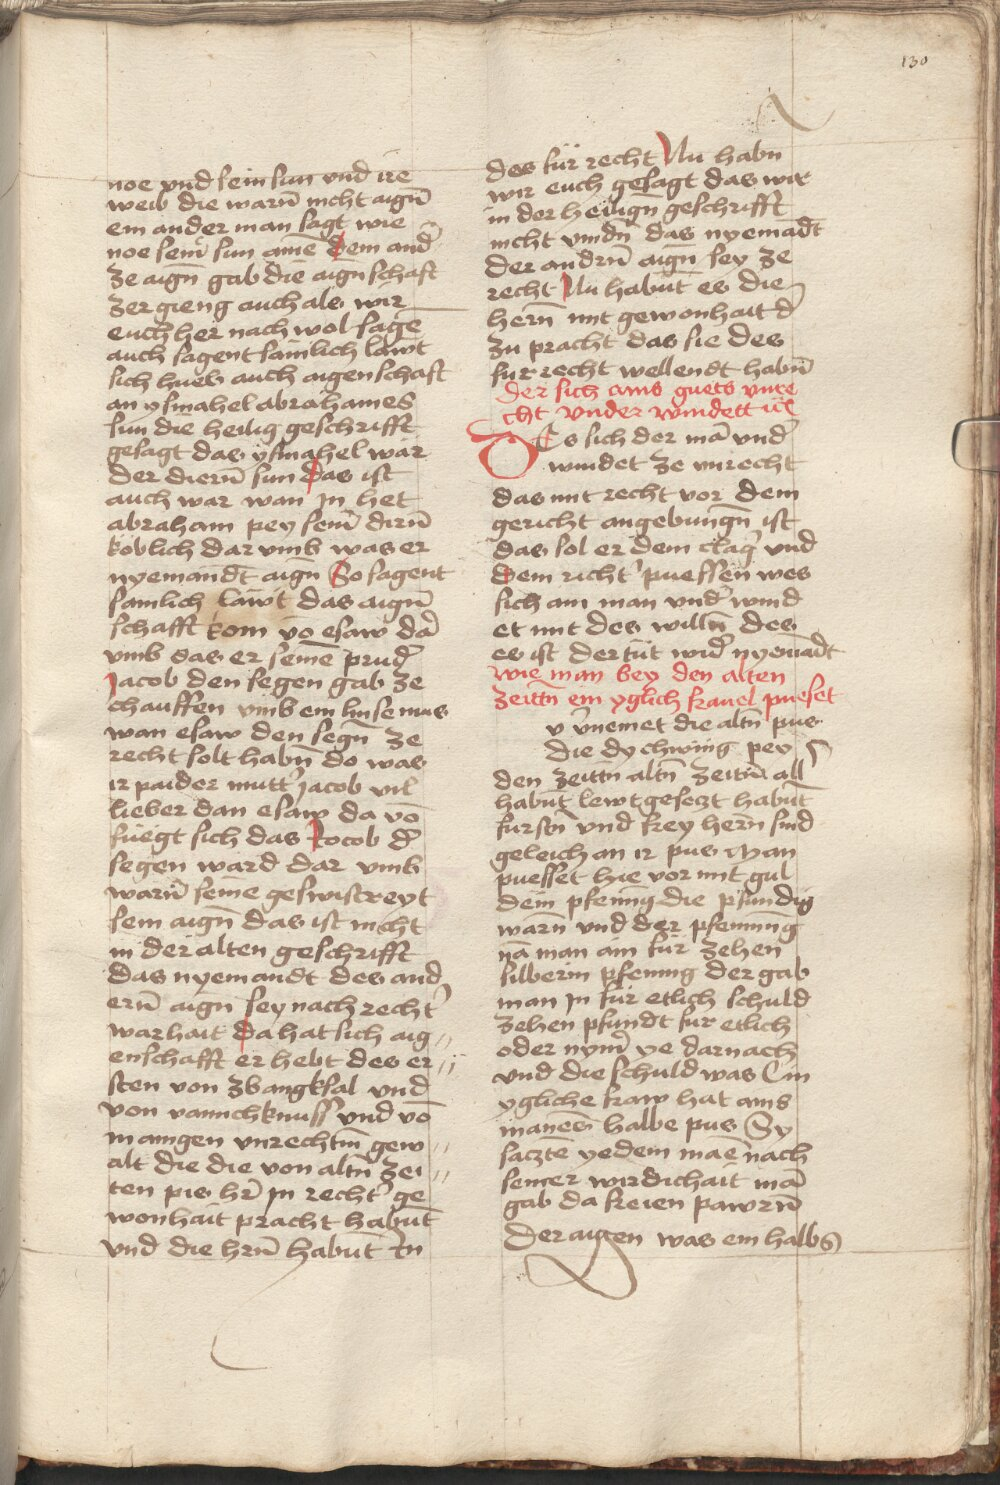 130
noe vnd sein sun vnd ire
weib die warn̄ nicht aign̄
ein ander man sagt wie
noe sein̄ sun aine dem and̄
ze aign̄ gab die aignschaft
zergieng auch als wir
euch her nach wol sagē
auch sagent sämlich läwt
sich hueb auch aigenschaft
an ysmahel abrahames
sun die heilig geschrifft
gesagt das ysmahel wär
der diern̄ sun das ist
auch war wan In het
abraham pey sein̄ dirn̄
koblich dar vmb was er
nyemandt aign̄ So sagent
samlich läwt das aign̄
schafft kom vō esaw dar̄
vmb das er seinē prud̄
Jacob den segen gab ze
chauffen vmb ein linsemus
wan esaw den segn̄ ze
recht solt habn̄ do was
ir paider mutt̄ Jacob vil
lieber dan esaw da vō
fuegt sich das Jocob d̄
segen ward dar vmb
warn̄ seine geswistreyt
sein aign̄ das ist nicht
in der alten geschrifft
das nyemandt des and
ern̄ aign sey nach recht̄
warhait da hat sich aig
enschafft er hebt des er
sten von zbangksal vnd
von vannchknuss vnd vō
maingen vnrechtm̄ gew
alt die die von altn̄ zei
ten pis hr̄ in recht̄ ge
wonhait pracht habnt̄
vnd die hrn̄ habnt̄ In
des für recht Nu habn
wir euch gesagt das wir
in der heilign̄ geschrifft
nicht vindn̄ das nyemādt
der andrn̄ aign̄ sey ze
recht Nu habnt̄ es die
hern̄ mit gewonhait d̄
zu pracht das sie des
fur recht wellendt habn̄
der sich ains guets vnre
cht vnder windett
Es sich der mā vnd̄
windet ze vnrecht
das mit recht vor dem
gericht angebungn̄ ist
das sol er dem claḡ vnd
dem richt̄ puessen wes
sich ain man vnd̄ wind
et mit des willn̄ des
es ist der tüt wid̄ nyemādt
wie man bey den alten
zeittn̄ ein yglich frauel pueset
v v̄nemet die altn̄ pus
die dy chwing pey
den zeittn̄ altn̄ zeittn̄ all
habnt̄ lewt geseczt habnt̄
furstn̄ vnd frey hern̄ sind
geleich an ir pus Man
puesset hie vor mit gul
dein pfening die pfundig
warn̄ vnd der pfenning
nā man ain für zehen
silberin pfening der gab
man In für etlich schuld
zehen pfundt fur etlich
oder nym̄ ye darnach
vnd die schuld was Ein
ygliche fraw hat ains
mannes halbe pus Sy
saczte yedem mae nach
seiner wirdichait mā
gab da freien pawrn̄
Der aigen was ein halbs